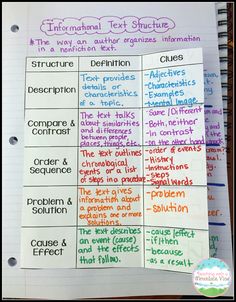 Informational Text Structure
* The way an author organizes information
in a nonfiction text.
Structure Definition Clues
Description
Text provides
details or
characteristics
of a topic.
-Adjectives
-Characteristics
-Examples
-Mental Image
Compare &
Contrast
The text talks
about similarities
and differences
between people,
places, things, etc.
-Same / Different
-Both, neither
-In contrast
-on the other hand
Order &
Sequence
The text outlines
chronological
events or a list
of steps in a procedure
-order of events
-History
-Instructions
-Steps
-Signal Words
Problem &
Solution
The text gives
information about
a problem and
explains one or
more solutions.
-problem
-solution
Cause &
Effect
The text describes
an event (cause)
and the effects
that follow.
-cause/effect
-if/then
-because
-as a result
Teaching with a
Mountain View